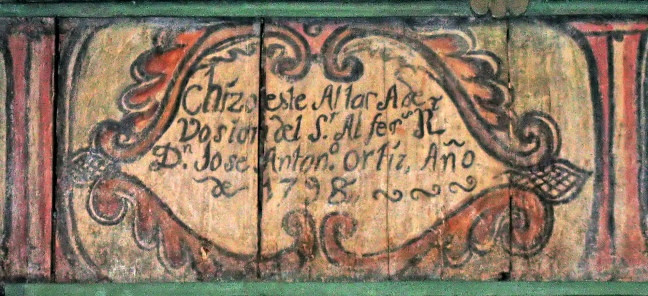 Chizo este Altar A de
Vosion del S.r Alferes R.
D.n Jose Anton.o Ortiz, Año
de 1798